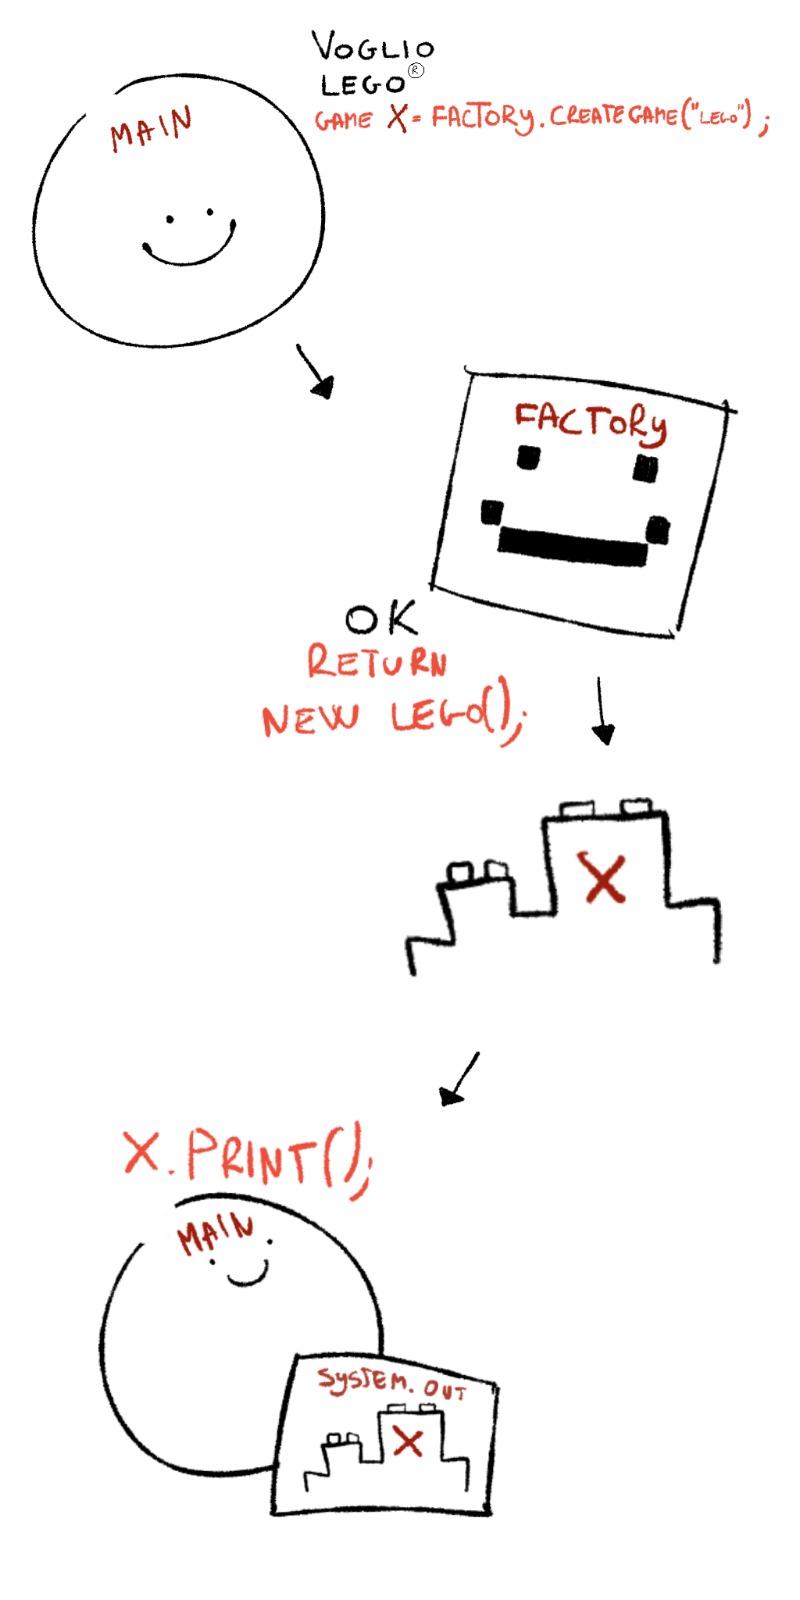 VOGLIO
LEGO®
GAME X = FACTORY.CREATEGAME("LEGO");
MAIN
FACTORY
OK
RETURN
NEW LEGO();
X
X.PRINT();
MAIN
SYSTEM.OUT
X